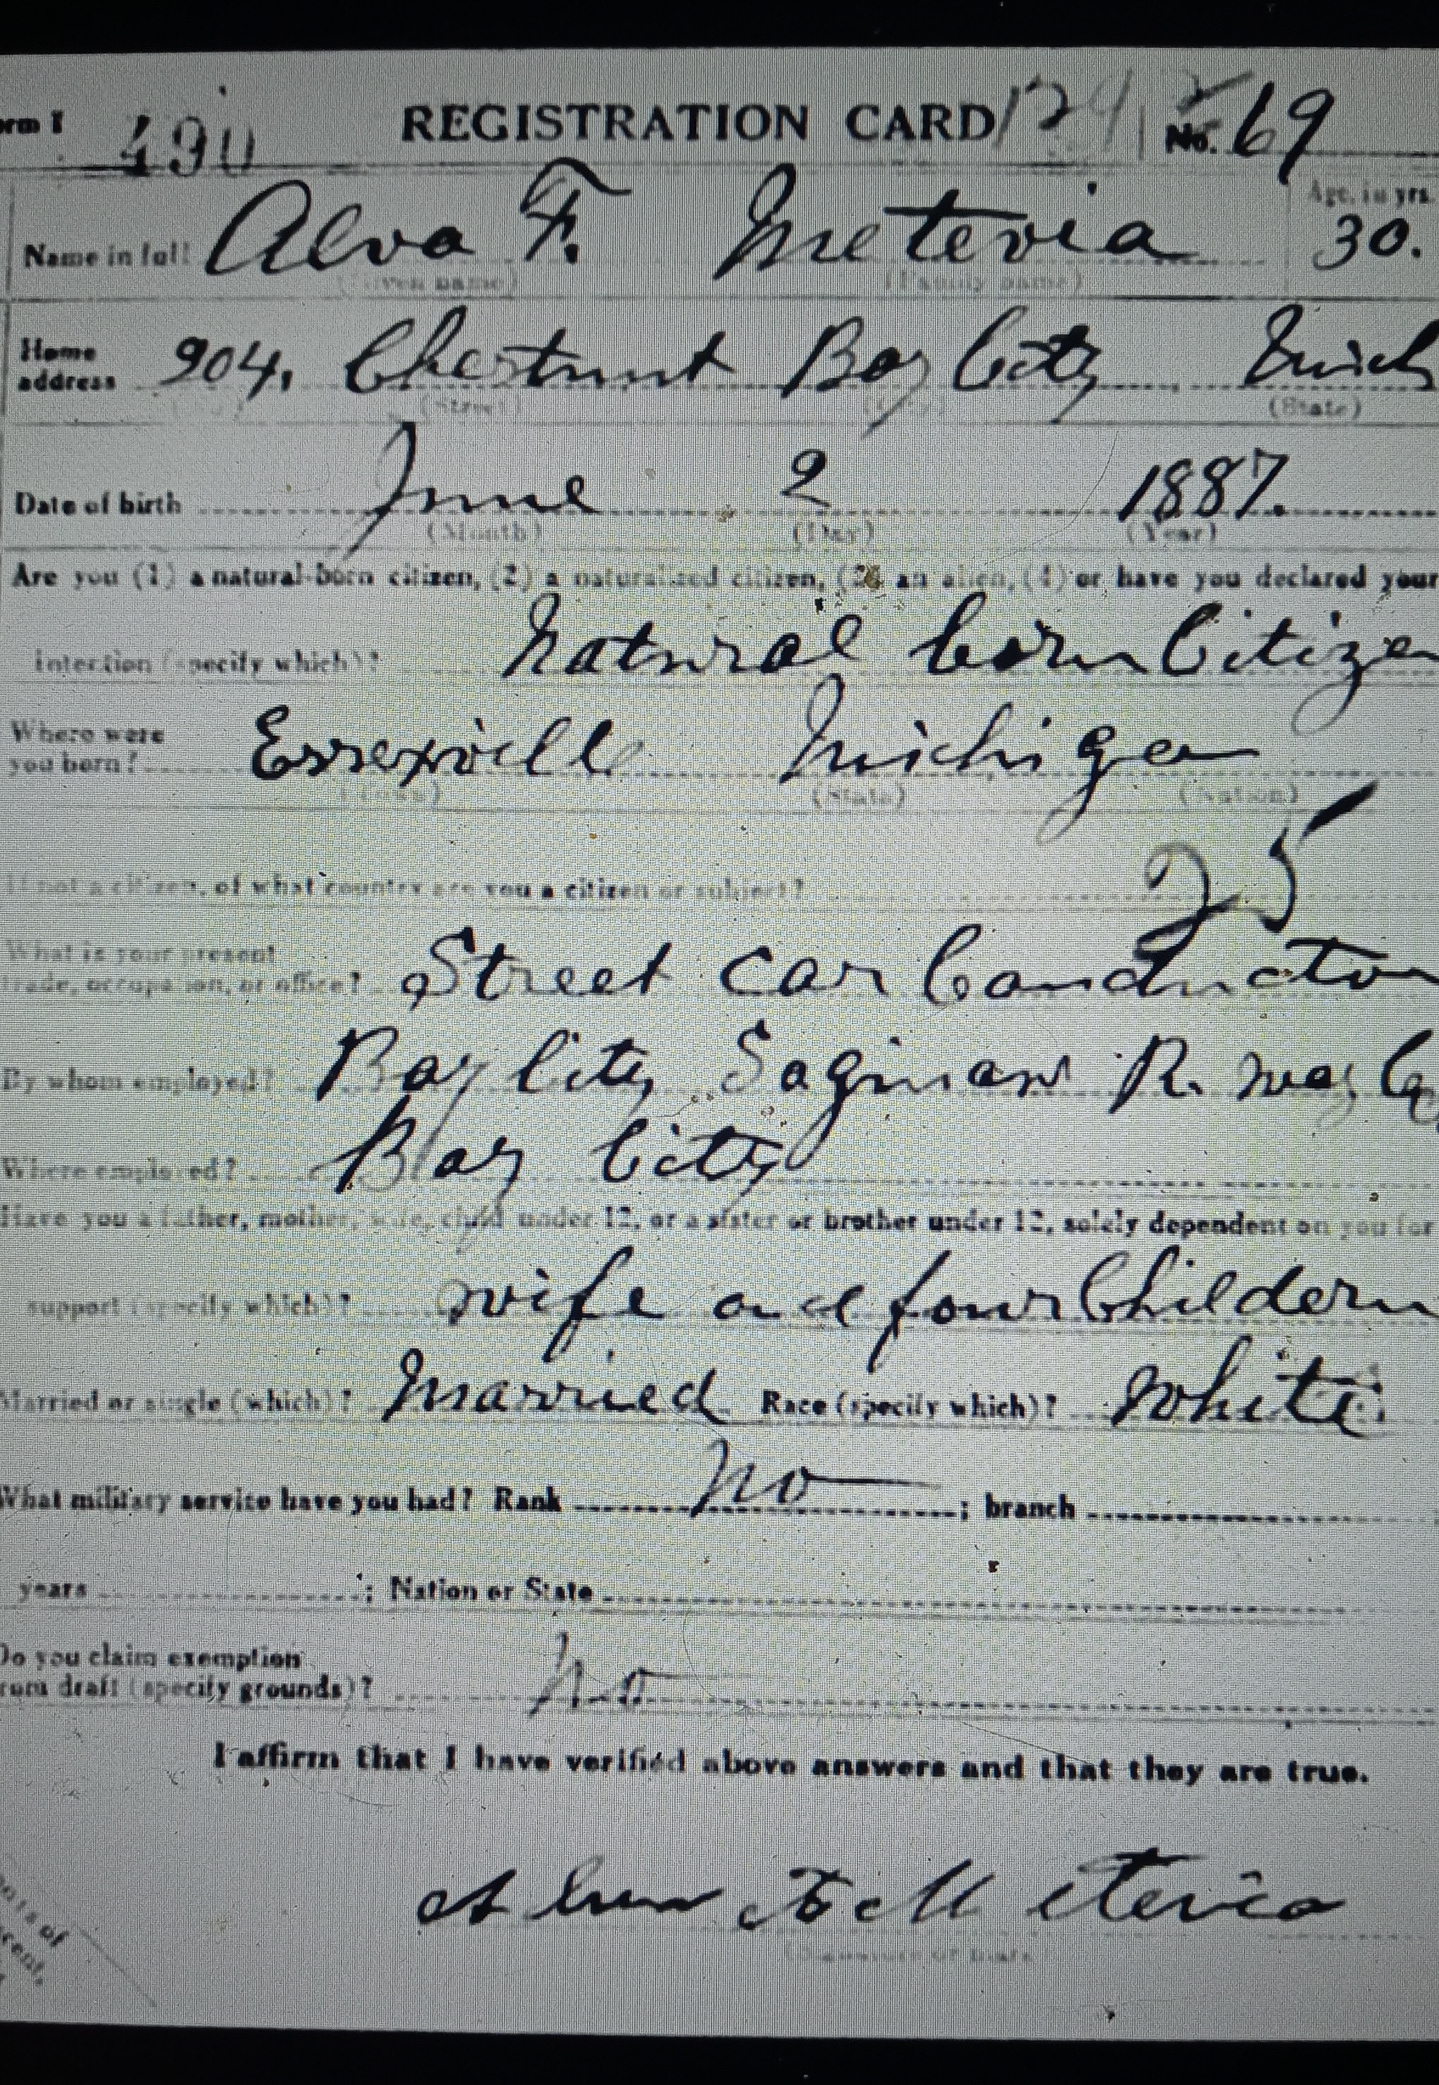 orm 1 490 REGISTRATION CARD No. 69
Age, in yrs.
Name in full Alva F. Metevia 30.
(Given name) (Family name)
Home address 904, Chestnut Bay City Mich
(Street) (State)
Date of birth June 2 1887.
(Month) (Day) (Year)
Are you (1) a natural-born citizen, (2) a naturalized citizen, (3) an alien, (4) or have you declared your
intention (specify which)? Natural born Citizen
Where were
you born? Essexville Michigan
(Town) (State) (Nation)
25
If not a citizen, of what country are you a citizen or subject?
What is your present
trade, occupation, or office? Street Car Conductor
By whom employed? Bay City Saginaw R. way Co
Where employed? Bay City
Have you a father, mother, wife, child under 12, or a sister or brother under 12, solely dependent on you for
support (specify which)? wife and four Childern
Married or single (which)? Married Race (specify which)? White
What military service have you had? Rank no ; branch
years ; Nation or State
Do you claim exemption
from draft (specify grounds)? no
I affirm that I have verified above answers and that they are true.
Alva F Metevia